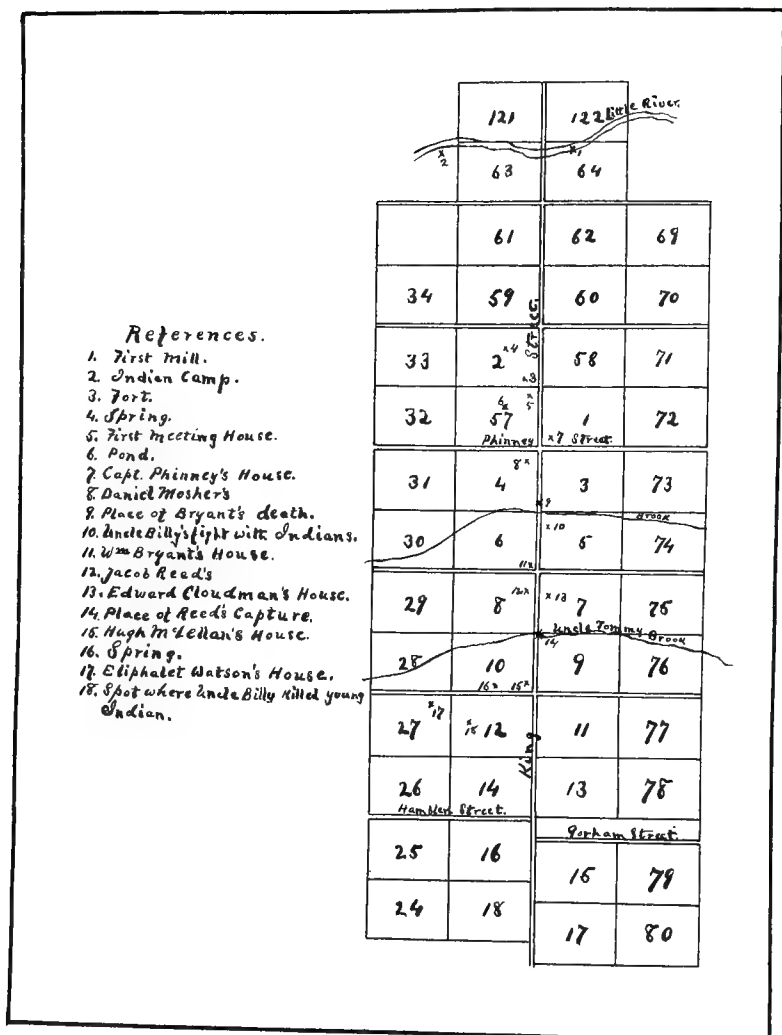 References.
1. First Mill.
2. Indian Camp.
3. Fort.
4. Spring.
5. First Meeting House.
6. Pond.
7. Capt. Phinney's House.
8. Daniel Mosher's
9. Place of Bryant's death.
10. Uncle Billy's fight with Indians.
11. Wm Bryant's House.
12. Jacob Reed's
13. Edward Cloudman's House.
14. Place of Reed's Capture.
15. Hugh McLellan's House.
16. Spring.
17. Eliphalet Watson's House.
18. Spot where Uncle Billy Killed young
Indian.
121 122 Little River.
x2 x1
63 64
61 62 69
34 59 60 70
Street.
33 2 x4 58 71
x3
6x x5
32 57 1 72
Phinney x7 Street.
8x
31 4 3 73
x9
Brook
x10
30 6 5 74
11x
29 8 12x x13 7 75
Uncle Tommy Brook
x14
28 10 9 76
16x 15x
27 x17 x18 12 11 77
King
26 14 13 78
Hamblen Street.
Gorham Street.
25 16 15 79
24 18 17 80